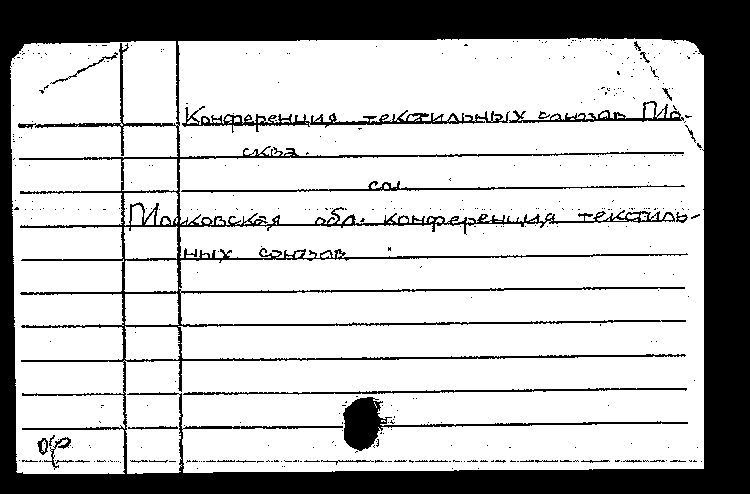 Конференция текстильных союзов Мо-
сква.
см.
Московская обл. конференция текстиль-
ных союзов